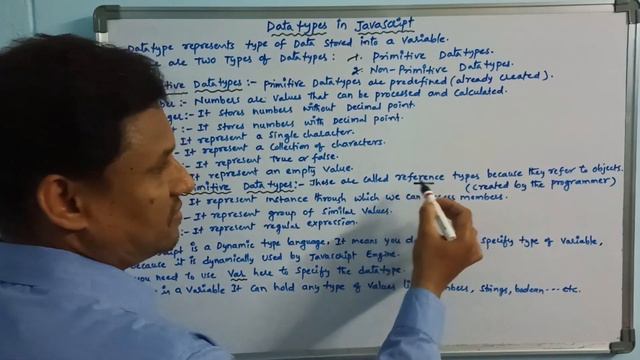 Data types in Javascript
Datatype represents type of Data stored into a variable.
are Two Types of Datatypes : 1. Primitive Datatypes.
2. Non-Primitive Datatypes.
Datatypes :- Primitive Datatypes are predefined (already created).
:- Numbers are values that can be processed and calculated.
:- It stores numbers without Decimal point.
:- It stores numbers with Decimal point.
It represent a Single character.
- It represent a Collection of characters.
:- It represent True or false.
It represent an empty Value.
Data types :- These are called reference types because they refer to objects.
(created by the programmer)
It represent instance through which we can members.
- It represent group of Similar Values.
:- It represent regular expression.
is a Dynamic type language, It means you specify type of variable,
because it is dynamically used by Javascript Engine.
you need to use Var here to specify the datatype.
is a variable It can hold any type of Values Stings, boolean --- etc.